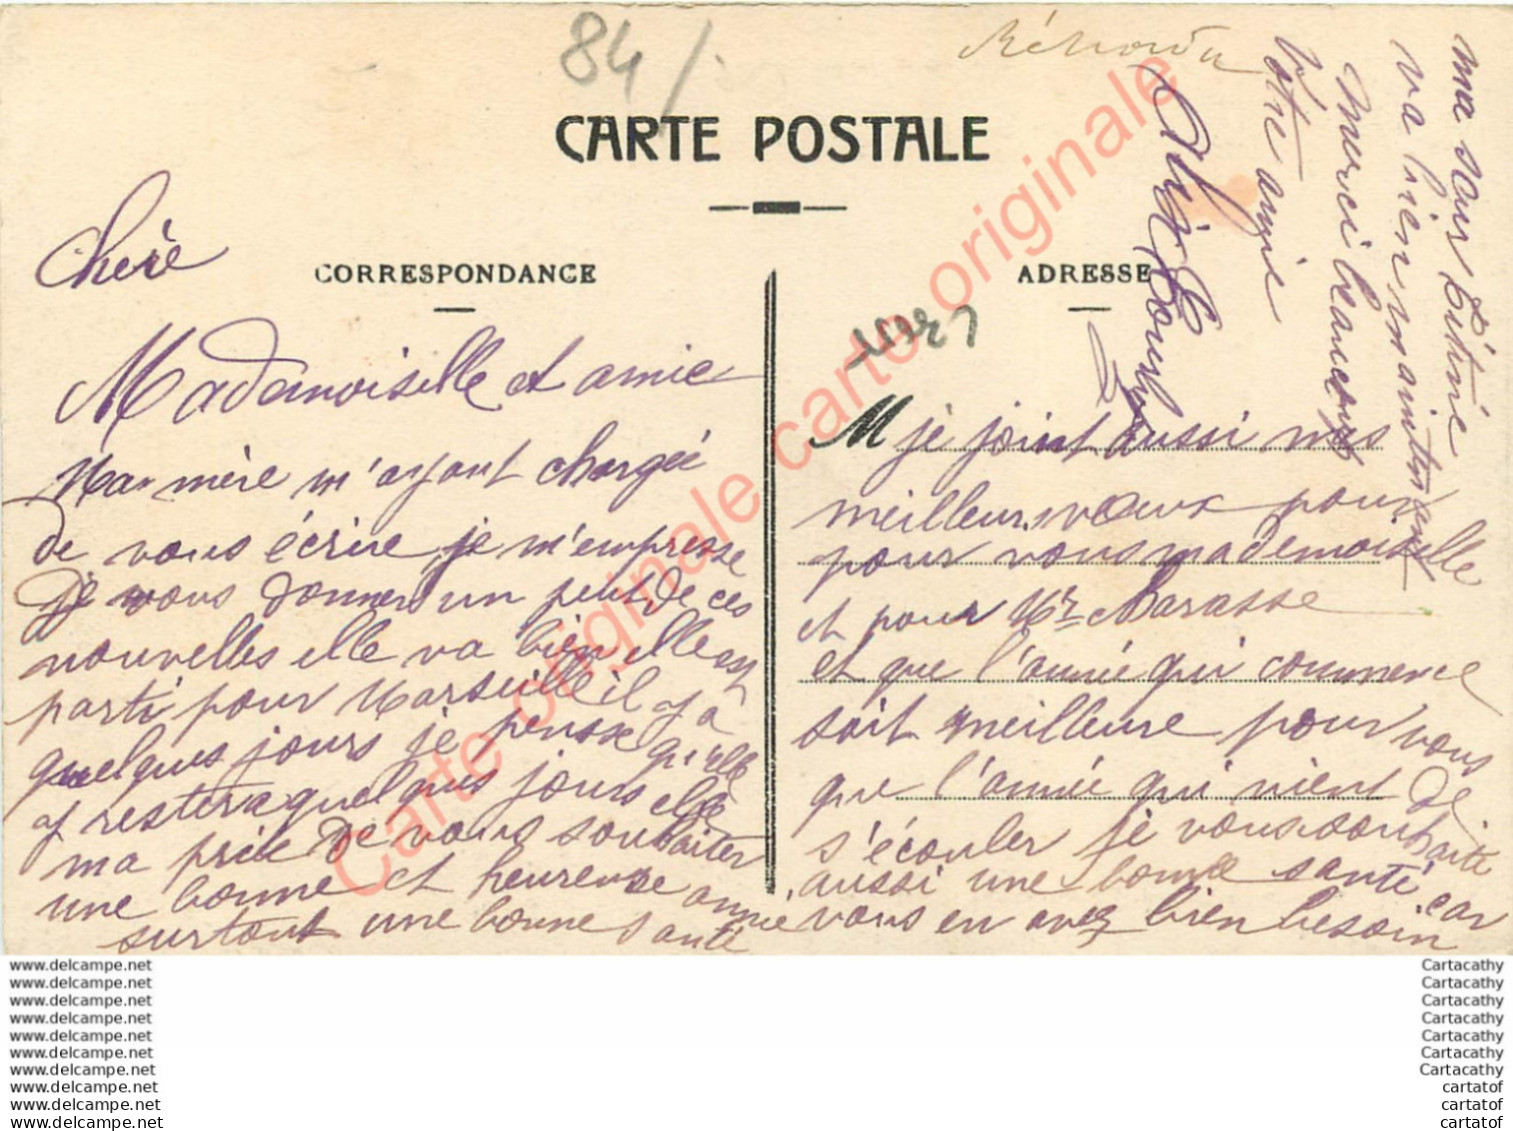 84/
CARTE POSTALE
CORRESPONDANCE
ADRESSE
Chère
Mademoiselle et amie
Ma mère m'ayant chargée
de vous écrire je m'empresse
de vous donner un petit de ces
nouvelles elle va bien elle est
parti pour Marseille il y a
quelques jours je pense qu'elle
y restera quelques jours elle
ma prie de vous souhaiter
une bonne et heureuse année
surtout une bonne santé
M je joint aussi mes
meilleurs vœux pour
pour vous mademoiselle
et pour Mr Barasse
et que l'année qui commence
soit meilleure pour vous
que l'année qui vient de
s'écouler je vous souhaite
aussi une bonne santé car
vous en avez bien besoin
ma sœur
va bien maintenant
merci beaucoup
Votre amie
Carte originale carte originale
www.delcampe.net
www.delcampe.net
www.delcampe.net
www.delcampe.net
www.delcampe.net
www.delcampe.net
www.delcampe.net
www.delcampe.net
www.delcampe.net
www.delcampe.net
Cartacathy
Cartacathy
Cartacathy
Cartacathy
Cartacathy
Cartacathy
Cartacathy
cartatof
cartatof
cartatof